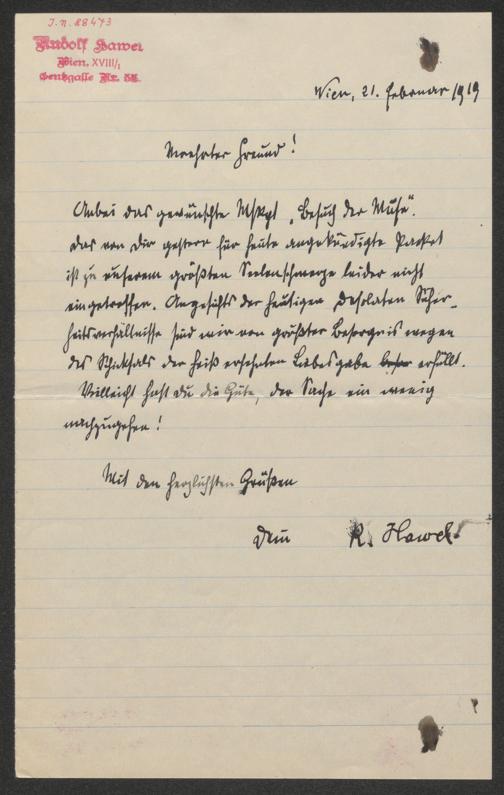 J.N. 88473
Rudolf Hawel
Wien, XVIII/1
Gentzgasse Nr.
Wien, 21. Februar 1919
Verehrter Freund!
Anbei das gewünschte Mskpt „Besuch der Muse“.
Das von Dir gestern für heute angekündigte Packet
ist zu unserem größten Seelenschmerze leider nicht
eingetroffen. Angesichts der heutigen desolaten Sicher-
heitsverhältnisse sind wir von größter Besorgnis wegen
des Schicksals der heiß ersehnten Liebesgabe erfüllt.
Vielleicht hast Du die Güte, der Sache ein wenig
nachzugehen!
Mit den herzlichsten Grüßen
Dein R. Hawel